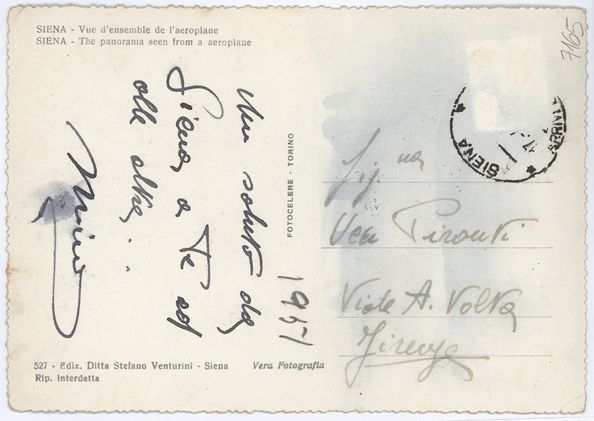 SIENA - Vue d'ensemble de l'aeroplane
SIENA - The panorama seen from a aeroplane
7165
Un saluto da
Siena a Te ed
alle altre.
1957
FOTOCELERE - TORINO
SIENA
ARRIVI
Sig.na
Pironti
Viale A. Volta
Firenze
527 - Ediz. Ditta Stefano Venturini - Siena
Vera Fotografia
Rip. Interdetta